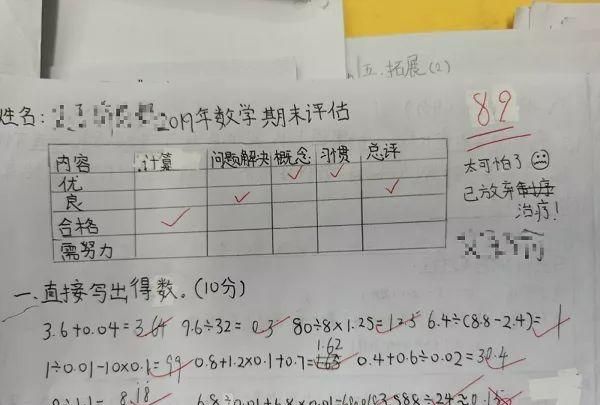 五.拓展(2)
姓名: 2019年数学期末评估
89
内容 计算 问题解决 概念 习惯 总评
优
良
合格
需努力
太可怕了
已放弃
治疗!
一.直接写出得数。(10分)
3.6+0.04=3.64 9.6÷32=0.3 80÷8×1.25=12.5 6.4÷(8.8-2.4)=1
1÷0.01-10×0.1=99 0.8+1.2×0.1+0.7=1.62 0.4+0.6÷0.02=30.4